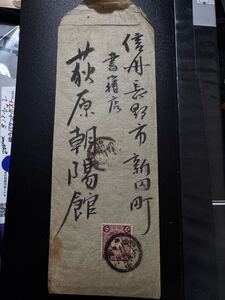 信州長野市新田町
書籍店
荻原朝陽館